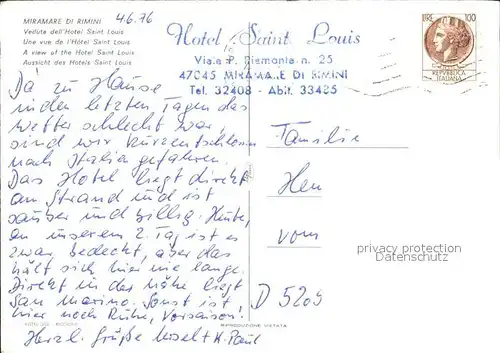 MIRAMARE DI RIMINI
4.6.76
Veduta dell'Hotel Saint Louis
Une vue de l'Hôtel Saint Louis
A view of the Hotel Saint Louis
Aussicht des Hotels Saint Louis
Hotel Saint Louis
Viale P. Piemonte n. 25
47045 MIRAMARE DI RIMINI
Tel. 32408 - Abit. 33485
LIRE 100
REPVBBLICA
ITALIANA
Da zu Hause
in den letzten Tagen das
Wetter schlecht war,
sind wir kurzentschlossen
nach Italia gefahren.
Das Hotel liegt direkt
am Strand und ist
sauber und billig. Heute,
an unserem 2. Tag ist es
zwar bedeckt, aber das
hält sich hier nie lange.
Direkt in der Nähe liegt
San Marino. Sonst ist
hier noch Ruhe, Vorsaison!
Herzl. Grüße + K. Paul
Familie
vom
D 5209
RIPRODUZIONE VIETATA
privacy protection
Datenschutz